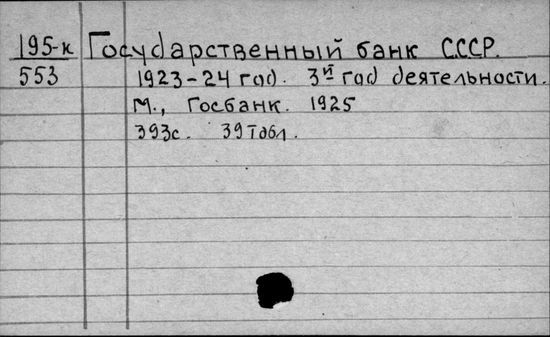 195-к Государственный банк СССР.
553 1923-24 год. 3й год деятельности.
М., Госбанк. 1925
393с. 39 табл.